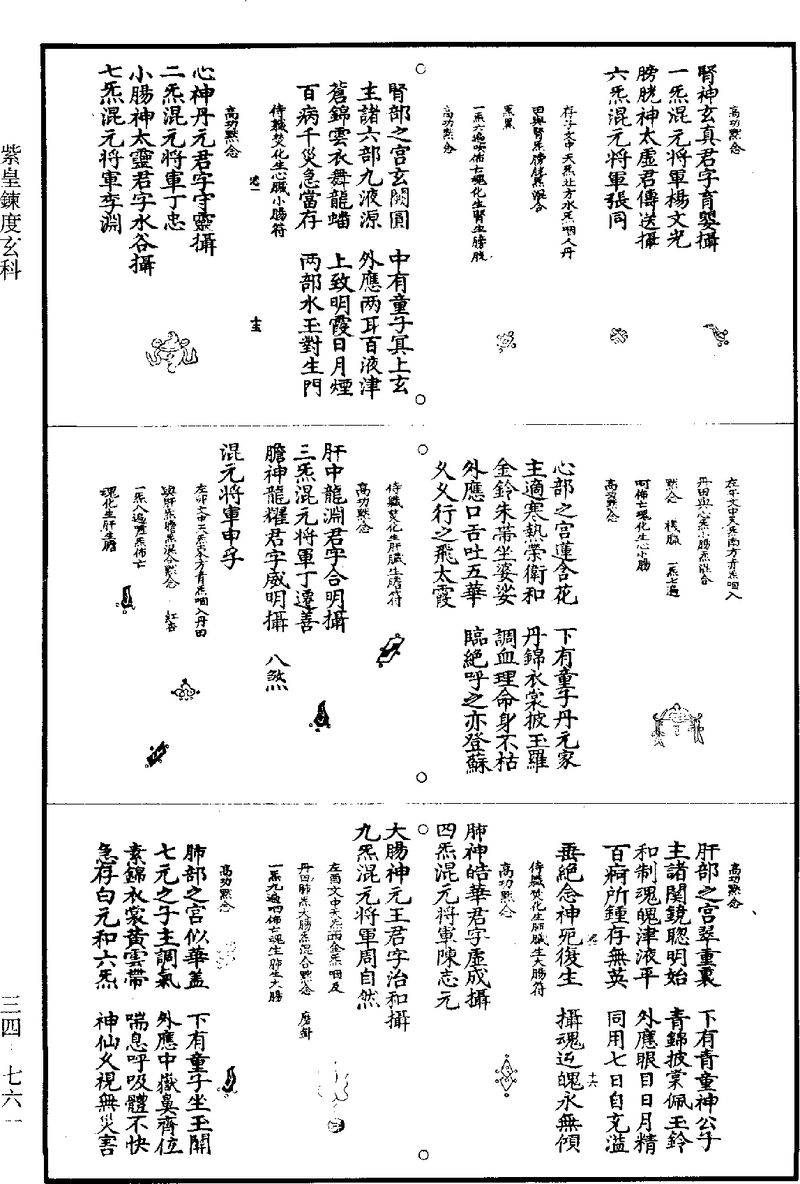 紫皇鍊度玄科
三四·七六一
高功黙念
腎神玄真君字育嬰攝
一炁混元將軍楊文光
膀胱神太虛君傳送攝
六炁混元將軍張同
存斗文中天炁北方水炁咽入丹
田與腎炁膀胱炁混合
黑黑
一炁六遍吹佈亡魂化生腎生膀胱
高功黙念
腎部之宮玄闕圓　中有童子冥上玄
主諸六部九液源　外應两耳百液津
蒼錦雲衣舞龍蟠　上致明霞日月煙
百病千災急當存　两部水王對生門
侍職焚化生心臟小腸符
高功黙念
心神丹元君字守靈攝
二炁混元將軍丁忠
小腸神太靈君字水谷攝
七炁混元將軍李淵
左斗文中天炁南方青炁咽入
丹田與心炁小腸炁混合
黙念　一炁七遍
呵佈亡魂化生心小腸
高功黙念
心部之宮蓮含花　下有童子丹元家
主適寒熱榮衛和　丹錦衣裳披玉羅
金鈴朱蒂坐婆娑　調血理命身不枯
外應口舌吐五華　臨絕呼之亦登蘇
久久行之飛太霞
侍職焚化生肝臟生膽符
高功黙念
肝中龍淵君字合明攝
三炁混元將軍丁遷善
膽神龍耀君字威明攝　八炁
混元將軍申孚
左斗文中天炁東方青炁咽入丹田
與肝炁膽炁混合黙念
一炁八遍噓炁佈亡
魂化生肝生膽
高功黙念
肝部之宮翠重裏　下有青童神公子
主諸関鏡聰明始　青錦披裳佩玉鈴
和制魂魄津液平　外應眼目日月精
百痾所鍾存無英　同用七日自充溢
垂絕念神死復生　攝魂还魄永無傾
十六
侍職焚化生肺臟生大腸符
高功黙念
肺神皓華君字虛成攝
四炁混元將軍陳志元
大腸神元王君字治和攝
九炁混元將軍周自然
左斗文中天炁西金炁咽及
丹田肺炁大腸炁混合黙念
一炁九遍呬佈亡魂生肺生大腸
高功黙念
肺部之宮似華盖　下有童子坐玉闕
七元之子主調氣　外應中嶽鼻齊位
素錦衣裳黃雲帶　喘息呼吸體不快
急存白元和六炁　神仙久視無災害